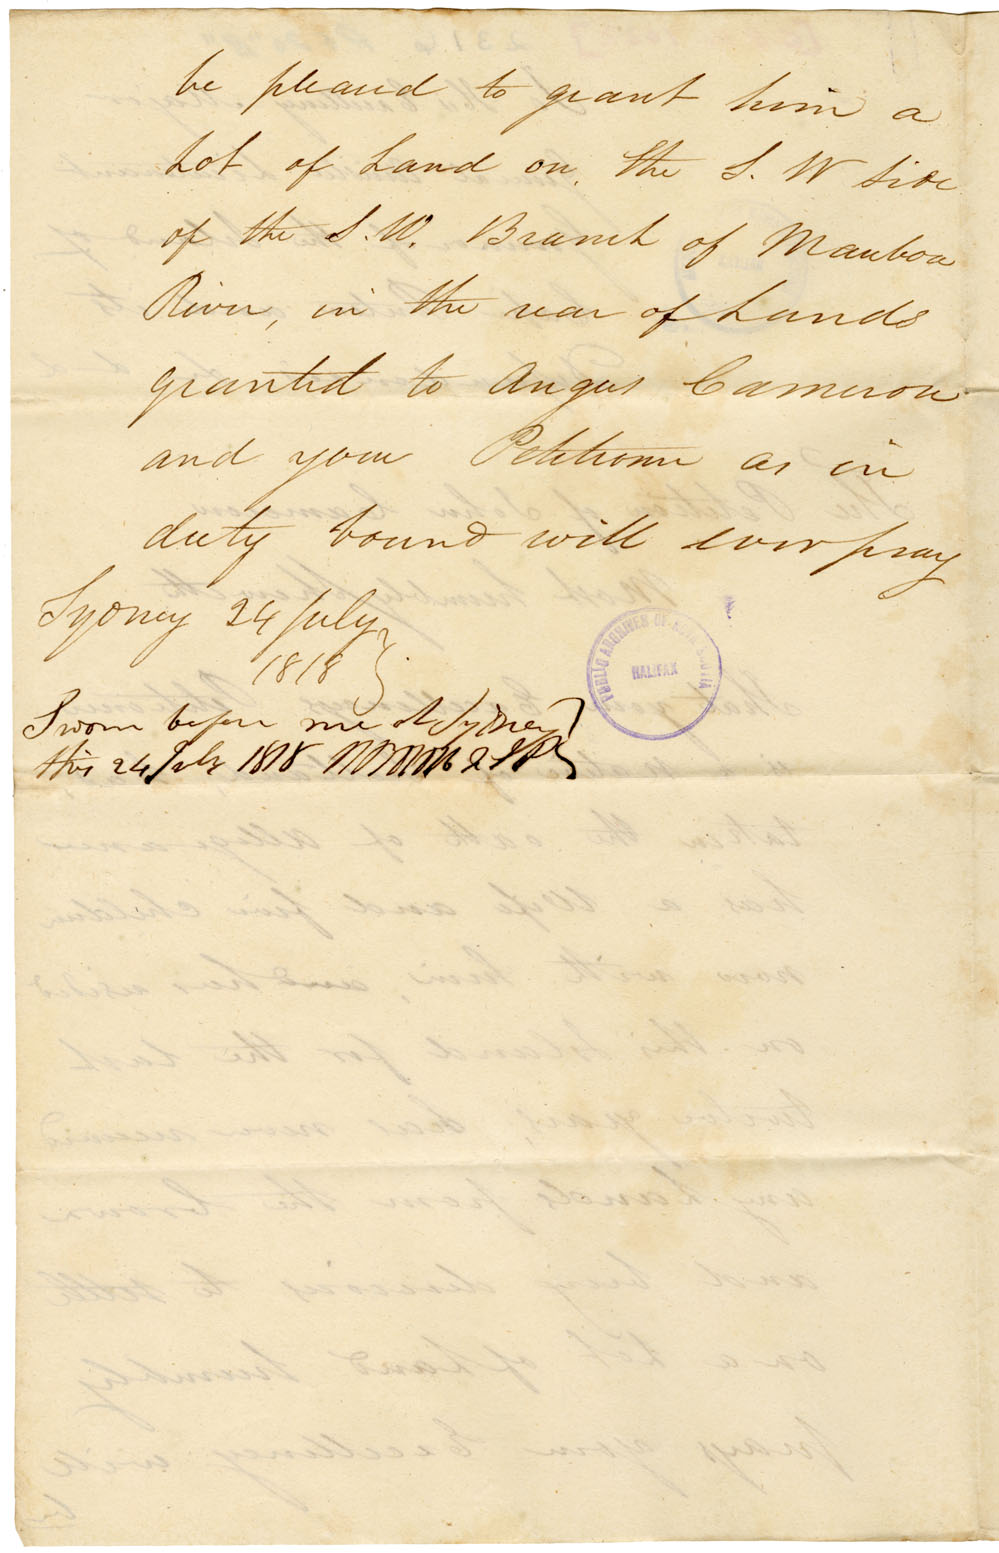 be pleased to grant him a
Lot of Land on the S. W side
of the S. W. Branch of Maubou
River, in the rear of Lands
granted to Angus Cameron
and your Petitioner as in
duty bound will ever pray
Sydney 24 July
1818
Sworn before me at Sydney
this 24 July 1818
PUBLIC ARCHIVES OF NOVA SCOTIA
HALIFAX